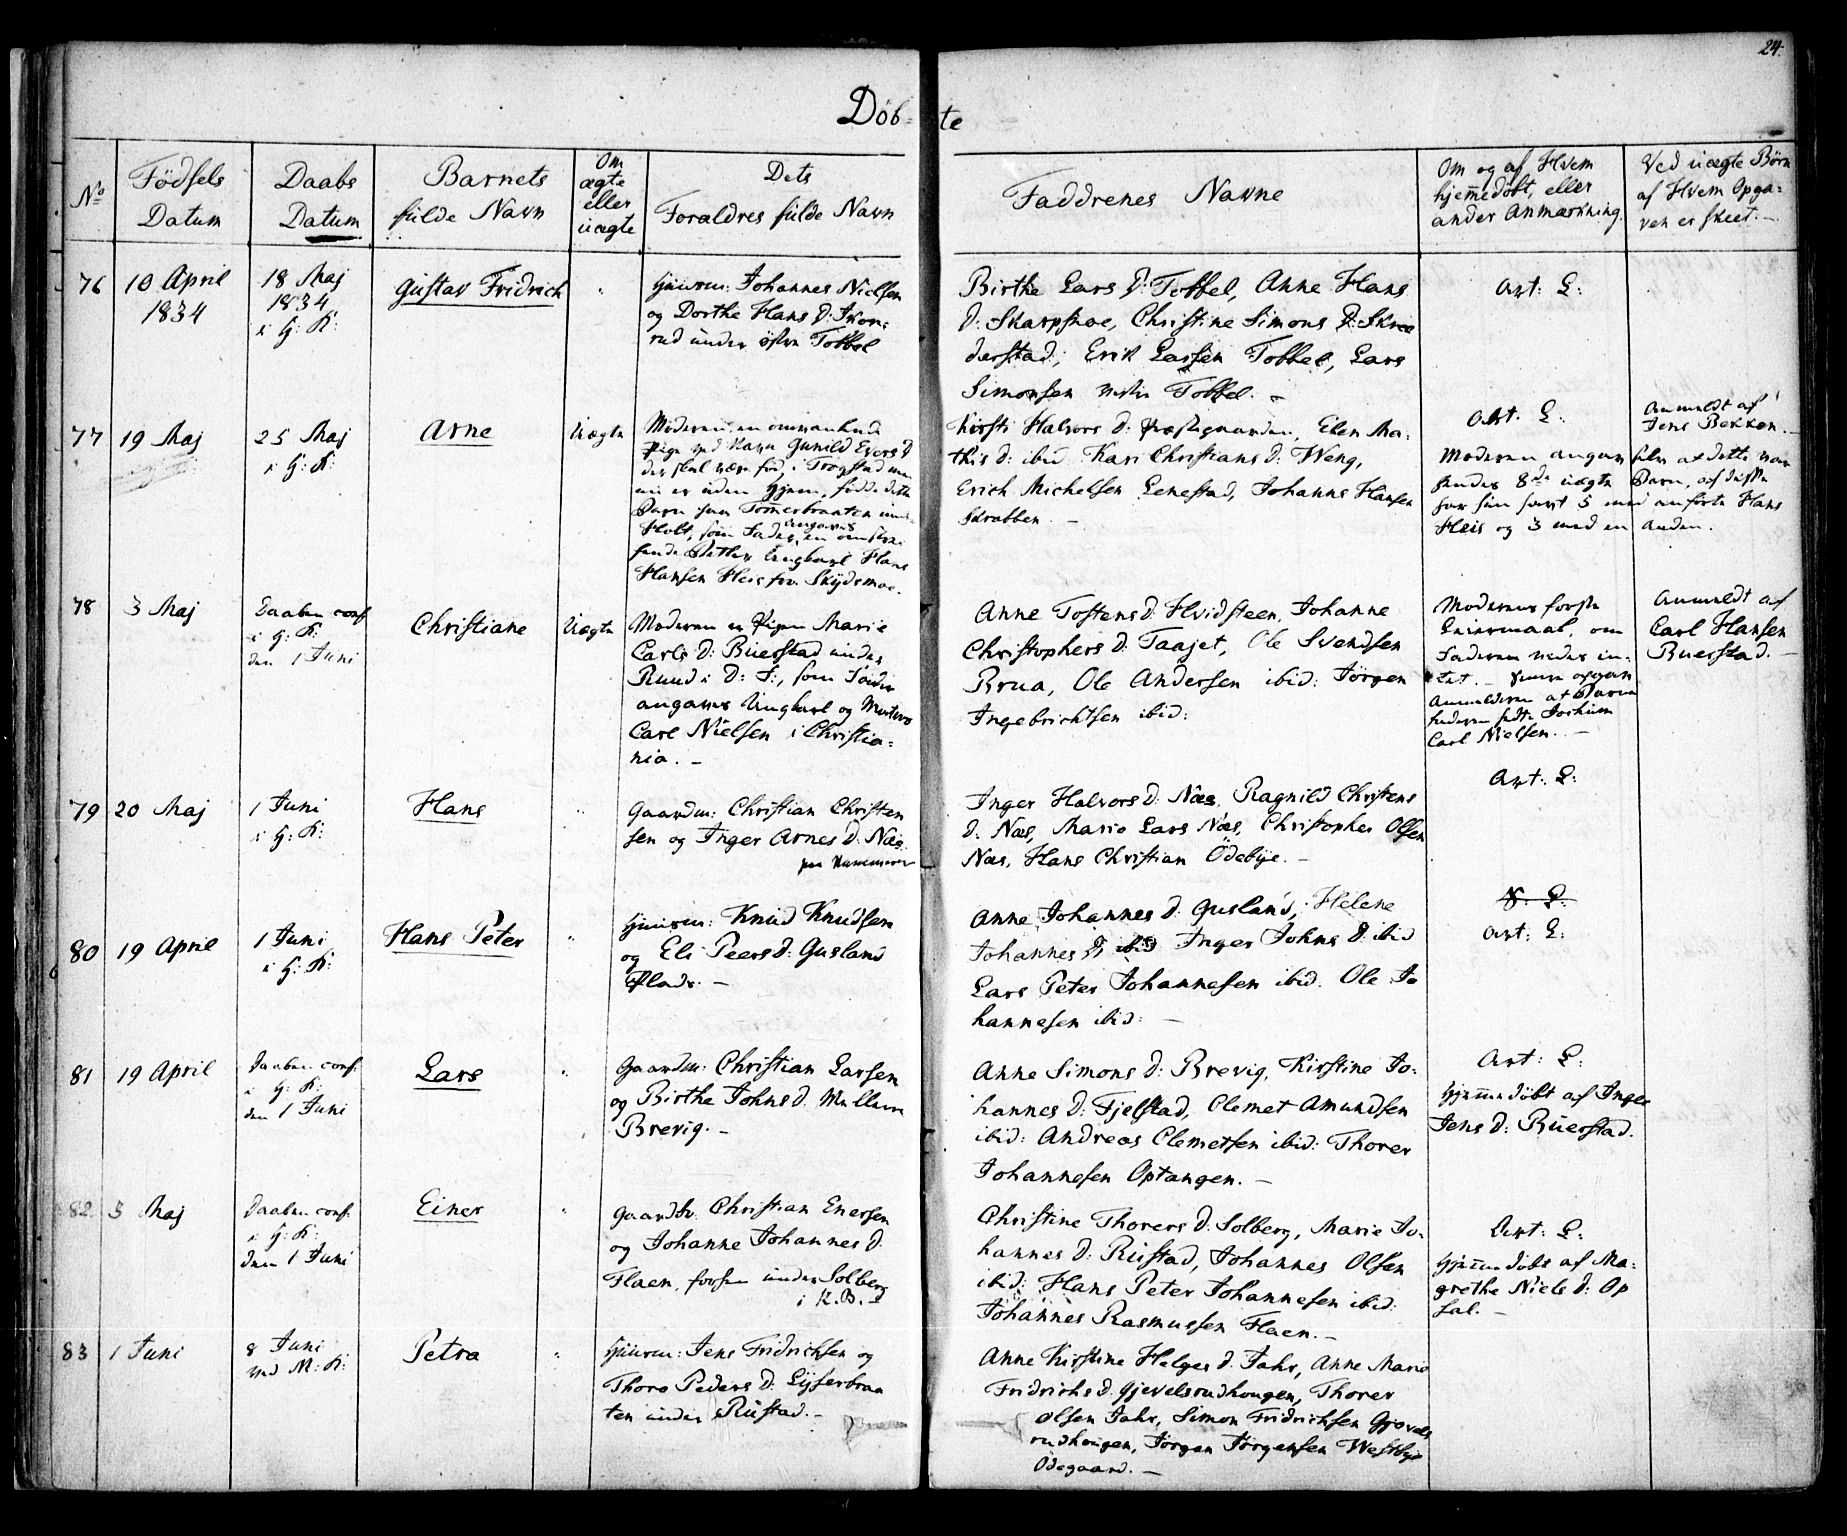 24.
Døb-te
No
Fødsels
Datum
Daabs
Datum
Barnets
fulde Navn
Om
ægte
eller
uægte
Dets
Forældres fulde Navn
Faddrenes Navne
Om og af Hvem
hjemedøbt, eller
anden Anmærkning.
Ved uægte Børn
af Hvem Opga-
ven er skeet.-
76
10 April
1834
18 Maj
1834
i H: K:
Gustav Fridrich
Huusm: Johannes Nielsen
og Dorthe Hans D:
under østre Toffel
Birthe Lars D: Toffel, Anne Hans
D: Skarpsnoe, Christine Simons D: Skræ
derstad, Erik Larsen Toffel, Lars
Simonsen Toffel. -
Art: L:
77
19 Maj
25 Maj
i H: K:
Arne
Uægte
Moderen en
Pige ved Navn Gunild Evers D
der skal være fød i Trøgstad men
nu er uden Hjem, fødde dette
Barn paa under
Holt, som Fader angaves en
Ungkarl Hans
Hansen Heis fra Skydsmoe.
Kirsti Halvors D: Præstegaarden, Elen Ma-
this D: ibid Kari Christians D: Weng,
Erich Michelsen Lenestad, Johannes Hansen
Skrabben. -
Art. L:
Moderen angav selv at dette var
hendes 8de uægte Barn, af disse
har hun havt 5 med anførte Hans
Heis og 3 med en anden.
Anmeldt af
Jens Bekken.-
78
3 Maj
Daaben conf.
i H: K:
den 1 Juni
Christiane
Uægte
Moderen er Pigen Marie
Carls D: Buerstad under
Ruud i D: S:, som Fader
angaves Ungkarl og
Carl Nielsen i Christia-
nia. -
Anne Tostens D: Hvidsteen, Johanne
Christophers D: Taajet, Ole Svendsen
Brua, Ole Andersen ibid: Jørgen
Ingebrichtsen ibid:
Moderens første
Leiermaal, om
Faderen vides in-
tet. -
Anmelderen at Barne
faderen hedte Jochum
Carl Nielsen. -
Anmeldt af
Carl Hansen
Buerstad. -
79
20 Maj
1 Juni
i H: K:
Hans
Gaardm: Christian Christen
sen og Inger Arnes D: Næs
Inger Halvors D: Næs, Ragnild Christens
D: Næs, Marie Lars Næs, Christopher Olsen
Næs, Hans Christian Ødebye. -
Art: L:
80
19 April
1 Juni
i H: K:
Hans Peter
Huusm: Knud Knudsen
og Eli Peers D: Gusland
Plads. -
Anne Johannes D: Gusland, Helene
Johannes D: ibid Inger Johns D: ibid
Lars Peter Johannesen ibid. Ole Jo
hannesen ibid: -
Art: L:
81
19 April
Daaben conf.
i H: K:
den 1 Juni
Lars
Gaardm: Christian Larsen
og Birthe Johns D. Mellem
Brevig. -
Anne Simons D: Brevig, Kirstine Jo-
hannes D: Fjelstad, Clemet Amundsen
ibid: Andreas Clemetsen ibid: Thorer
Johannesen Optangen. -
Art: L:
Hjemmedøbt af Inger
Jens D: Buerstad.
82
5 Maj
Daaben conf.
i H: K:
den 1 Juni
Einer
Christian Enersen
og Johanne Johannes D:
Flaen, forhen under Solberg
i K.B.
Christine Thorers D: Solberg, Marie Jo-
hannes D: Rustad, Johannes Olsen
ibid: Hans Peter Johannesen ibid:
Johannes Rasmussen Flaen. -
Art: L:
Hjemmedøbt af Ma-
grethe Niels D: Op
sal. -
83
1 Juni
8 Juni
ved M: K:
Petra
Huusm: Jens Fridrichsen og
Thora Peders D: Lysebraa
ten under Rustad. -
Anne Kirstine Helges D: Jahr, Anne Marie
Fridrichs D: Gjevelsrudhougen, Thorer
Olsen Jahr, Simon Fridrichsen Gjevels
rudhougen, Jørgen Jørgensen Westbye
Ødegaard. -